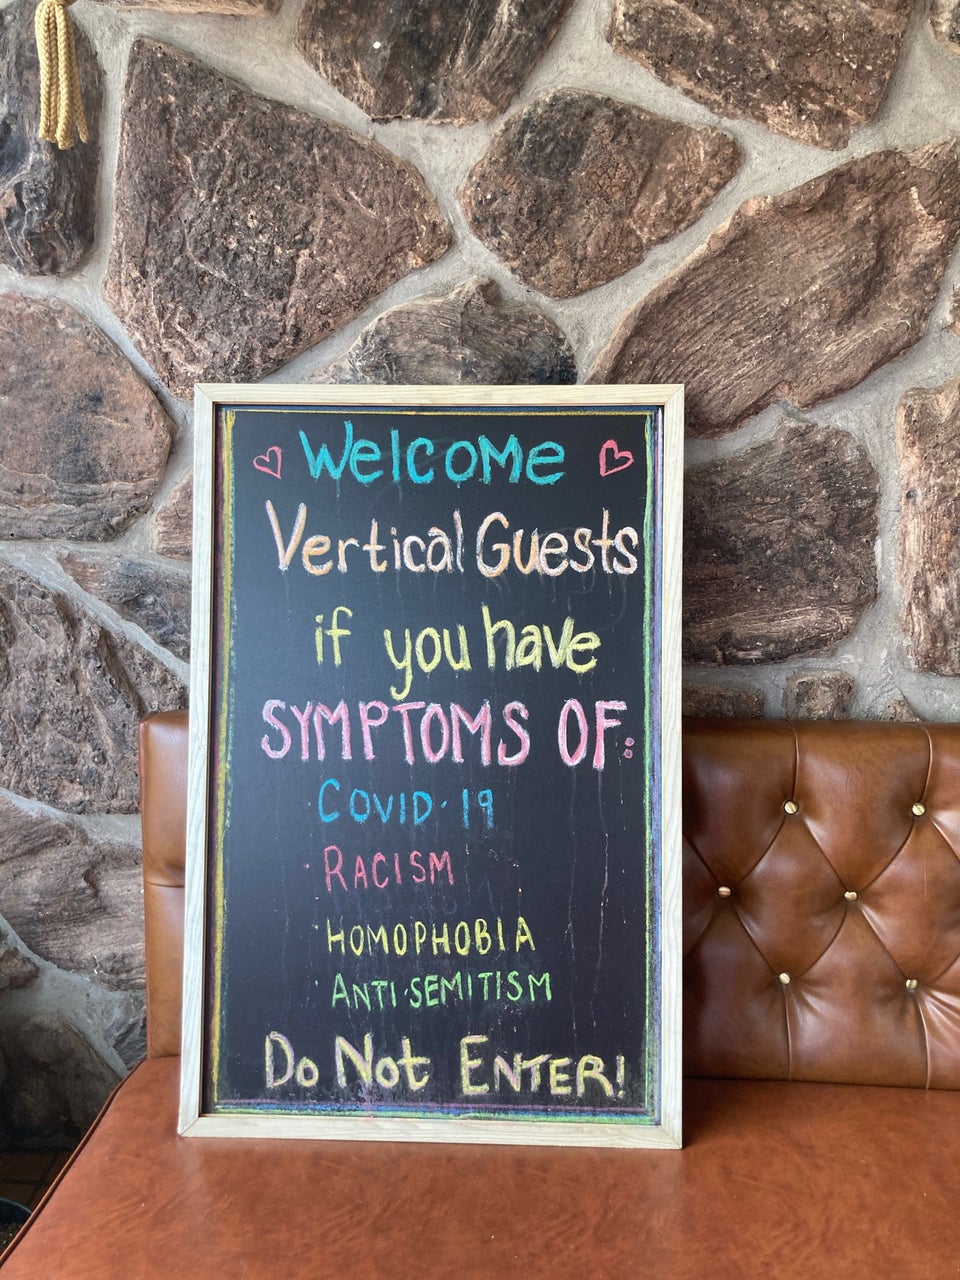 Welcome
Vertical Guests
if you have
SYMPTOMS OF:
· COVID·19
· RACISM
· HOMOPHOBIA
· ANTI·SEMITISM
Do Not ENTER!